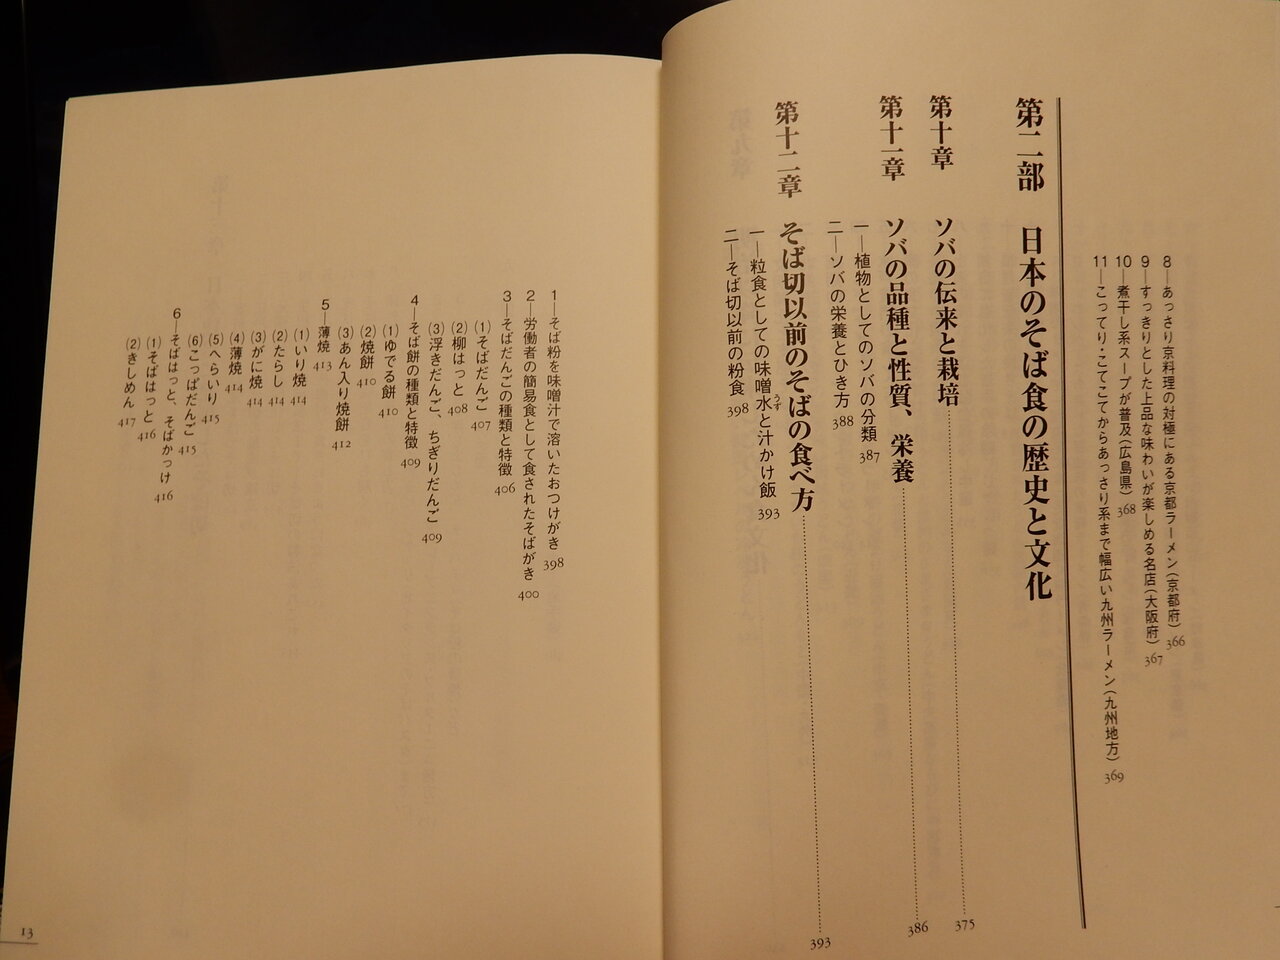 8—あっさり京料理の対極にある京都ラーメン(京都府) 366
9—すっきりとした上品な味わいが楽しめる名店(大阪府) 367
10—煮干し系スープが普及(広島県) 368
11—こってり・こてこてからあっさり系まで幅広い九州ラーメン(九州地方) 369
第二部 日本のそば食の歴史と文化
第十章 ソバの伝来と栽培 375
第十一章 ソバの品種と性質、栄養 386
一—植物としてのソバの分類 387
二—ソバの栄養とひき方 388
第十二章 そば切以前のそばの食べ方 393
一—粒食としての味噌水うずと汁かけ飯 393
二—そば切以前の粉食 398
1—そば粉を味噌汁で溶いたおつけがき 398
2—労働者の簡易食として食されたそばがき 400
3—そばだんごの種類と特徴 406
(1)そばだんご 407
(2)柳はっと 408
(3)浮きだんご、ちぎりだんご 409
4—そば餅の種類と特徴 409
(1)ゆでる餅 410
(2)焼餅 410
(3)あん入り焼餅 412
5—薄焼 413
(1)いり焼 414
(2)たらし 414
(3)がに焼 414
(4)薄焼 414
(5)へらいり 415
(6)こっぱだんご 415
6—そばはっと、そばかっけ 416
(1)そばはっと 416
(2)きしめん 417
13